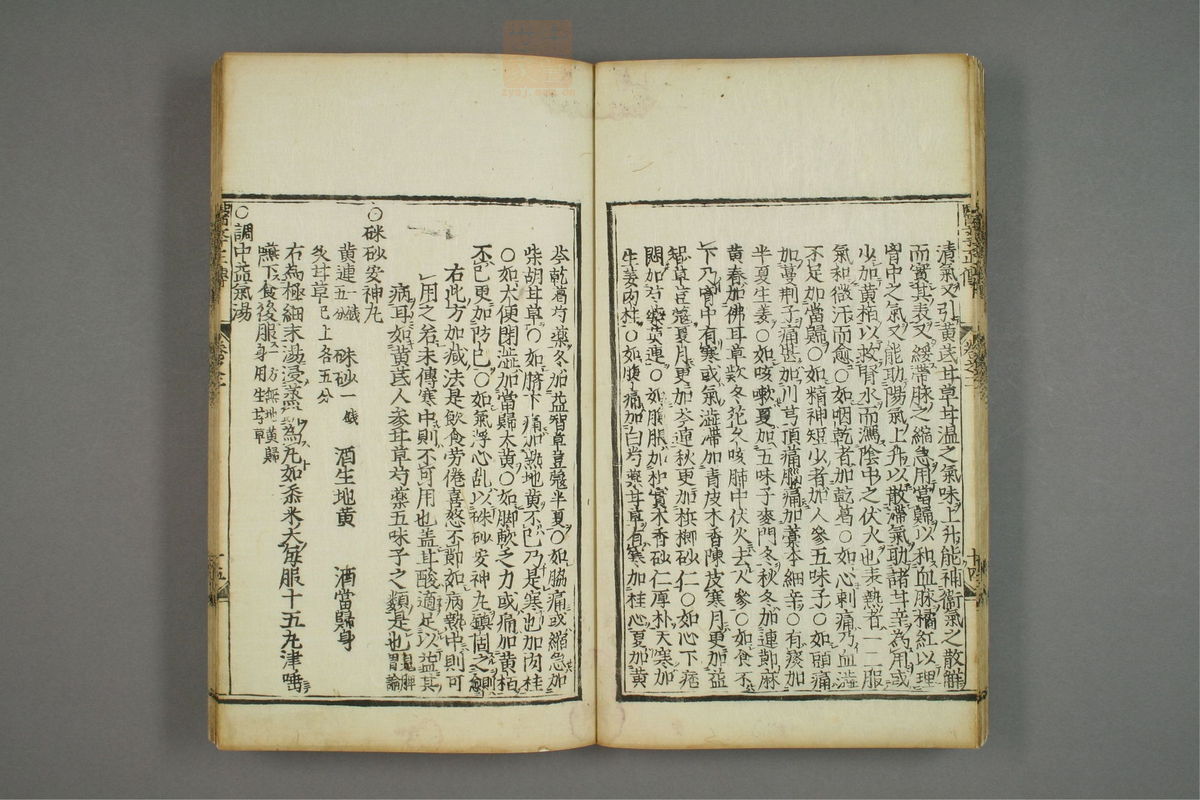 清氣又引黃芪甘草甘溫之氣味上升能補衞氣之散解
而實其表又緩帶脉之縮急用當歸以和血脉橘紅以理
胷中之氣又能助陽氣上升以散滯氣助諸甘辛為用或
少加黃栢以救腎水而瀉陰中之伏火也表熱者一二服
氣和微汗而愈○如咽乾者加乾葛○如心刺痛乃血澁
不足加當歸○如精神短少者加人參五味子○如頭痛
加蔓荆子痛甚加川芎頂痛腦痛加藁本細辛○有痰加
半夏生姜○如咳嗽夏加五味子麥門冬秋冬加連節麻
黃春加佛耳草欵冬花久咳肺中伏火去人參○如食不
下乃胷中有寒或氣澁滯加青皮木香陳皮寒月更加益
智草豆蔻夏月更加芩連秋更加檳榔砂仁○如心下痞
悶加芍藥黃連○如腹脹加枳實木香砂仁厚朴天寒加
生姜肉桂○如腹痛加白芍藥甘草有寒加桂心夏加黃
芩乾葛芍藥冬加益智草豆蔻半夏○如脇痛或縮急加
柴胡甘草○如臍下痛加熟地黃不已乃是寒也加肉桂
○如大便閉澁加當歸大黃○如脚軟乏力或痛加黃栢
不已更加防已○如氣浮心乱以硃砂安神丸鎮固之則愈
右此方加減法是飲食劳倦喜怒不節如病熱中則可
用之若未傳寒中則不可用也盖甘酸適足以益其
病耳如黃芪人參甘草芍藥五味子之類是也脾胃論
○硃砂安神丸
黃連五分 硃砂一錢 酒生地黃 酒當歸身
炙甘草已上各五分
右為極細末湯浸蒸餅為丸如黍米大每服十五丸津唾
嚥下食後服一方無地黃歸身用生甘草
○調中益氣湯